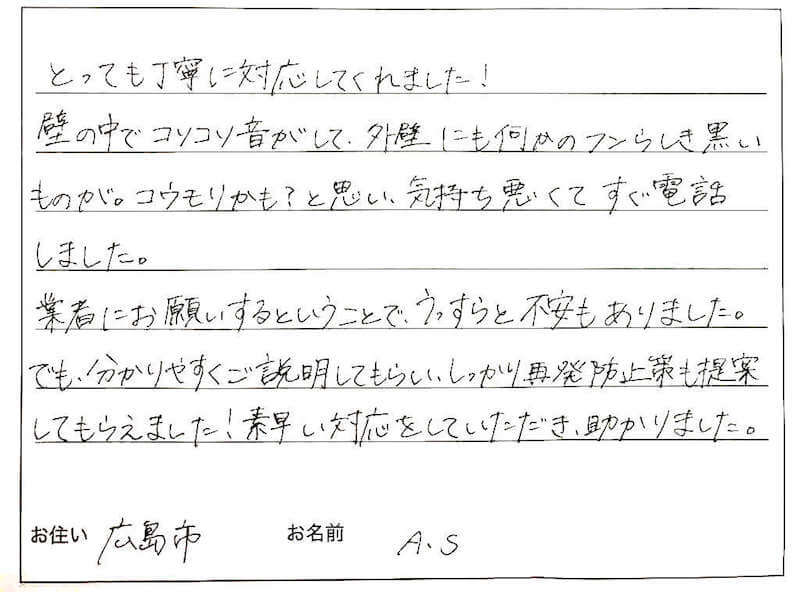 とっても丁寧に対応してくれました！
壁の中でコソコソ音がして、外壁にも何かのフンらしき黒い
ものが。コウモリかも？と思い、気持ち悪くてすぐ電話
しました。
業者にお願いするということで、うっすらと不安もありました。
でも、分かりやすくご説明してもらい、しっかり再発防止策も提案
してもらえました！素早い対応をしていただき、助かりました。
お住い 広島市 お名前 A.S